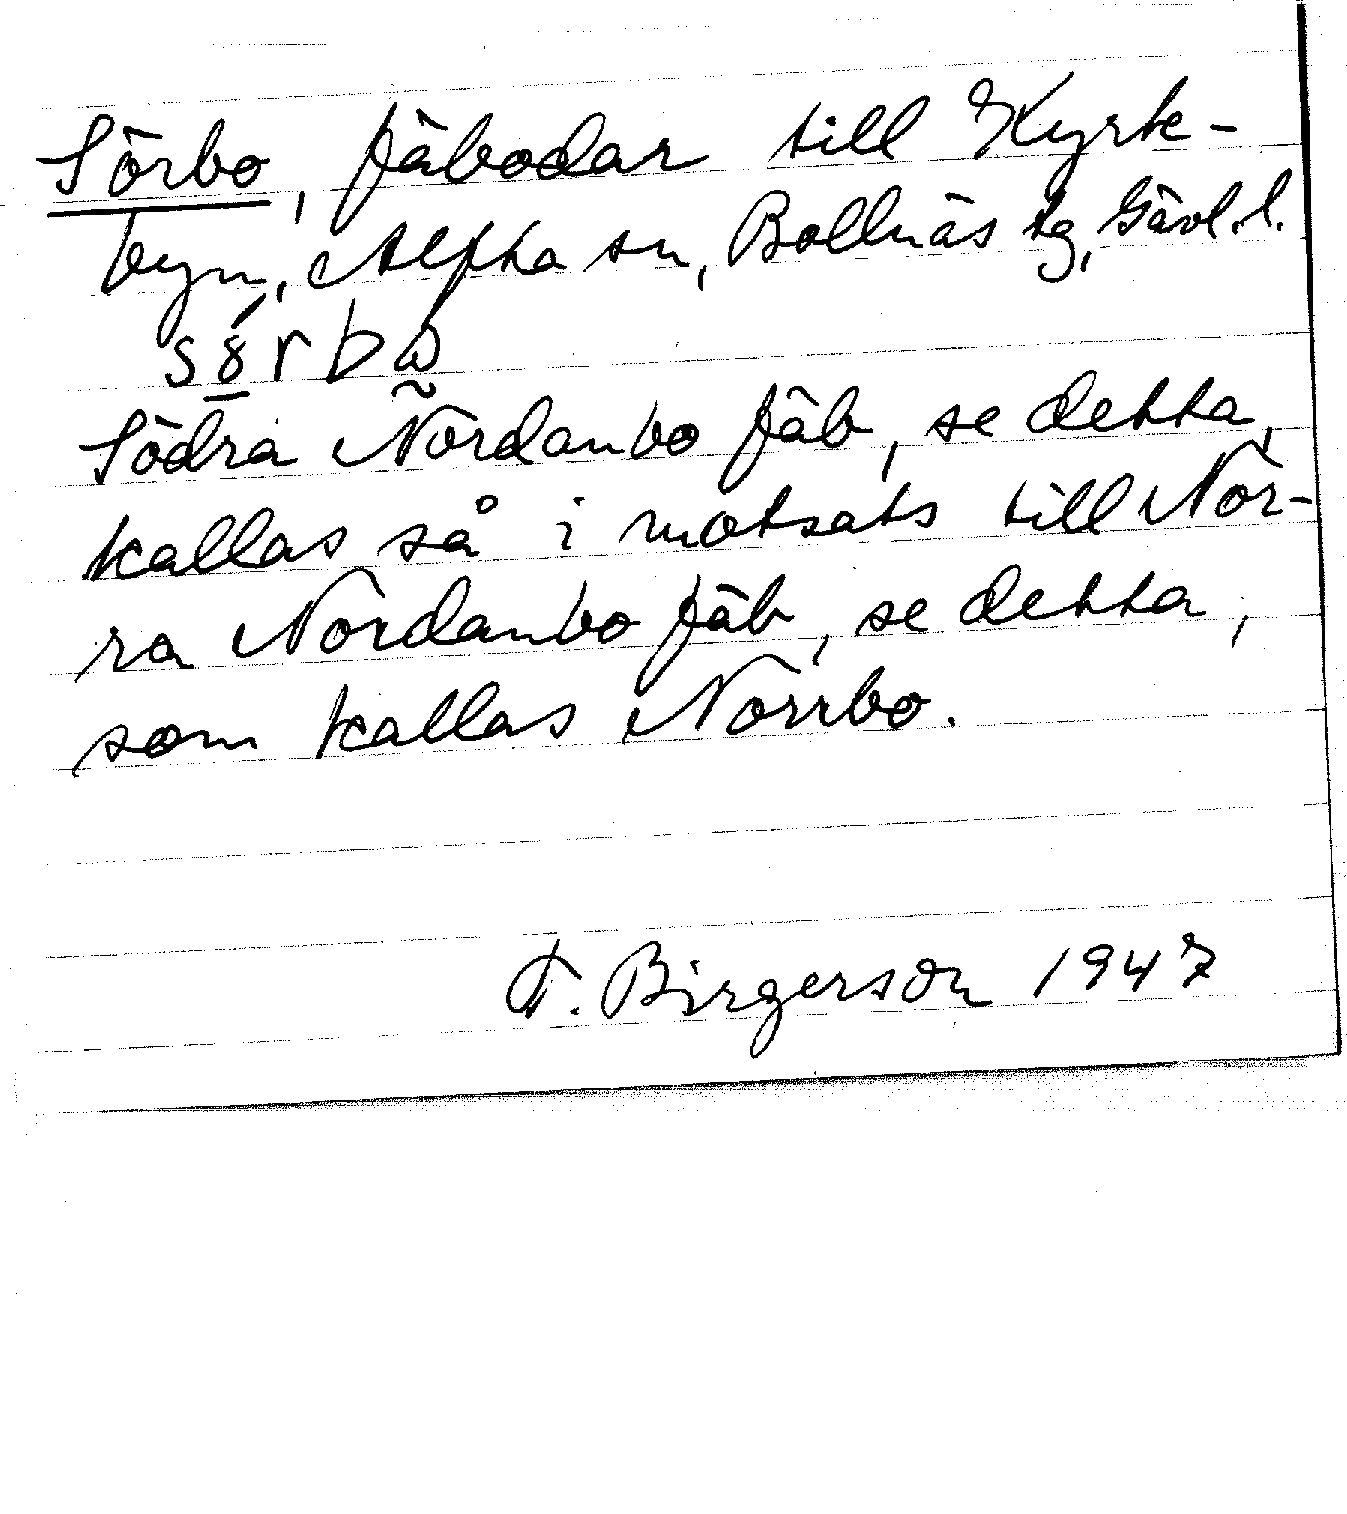 Sörbo, fäbodar till Kyrk-
byn, Alfta sn, Bollnäs tg, Gävl. l.
Södra Nordanbo fäb, se detta,
kallas så i motsats till Nor-
ra Nordanbo fäb, se detta,
som kallas Norrbo.
F. Birgerson 1947